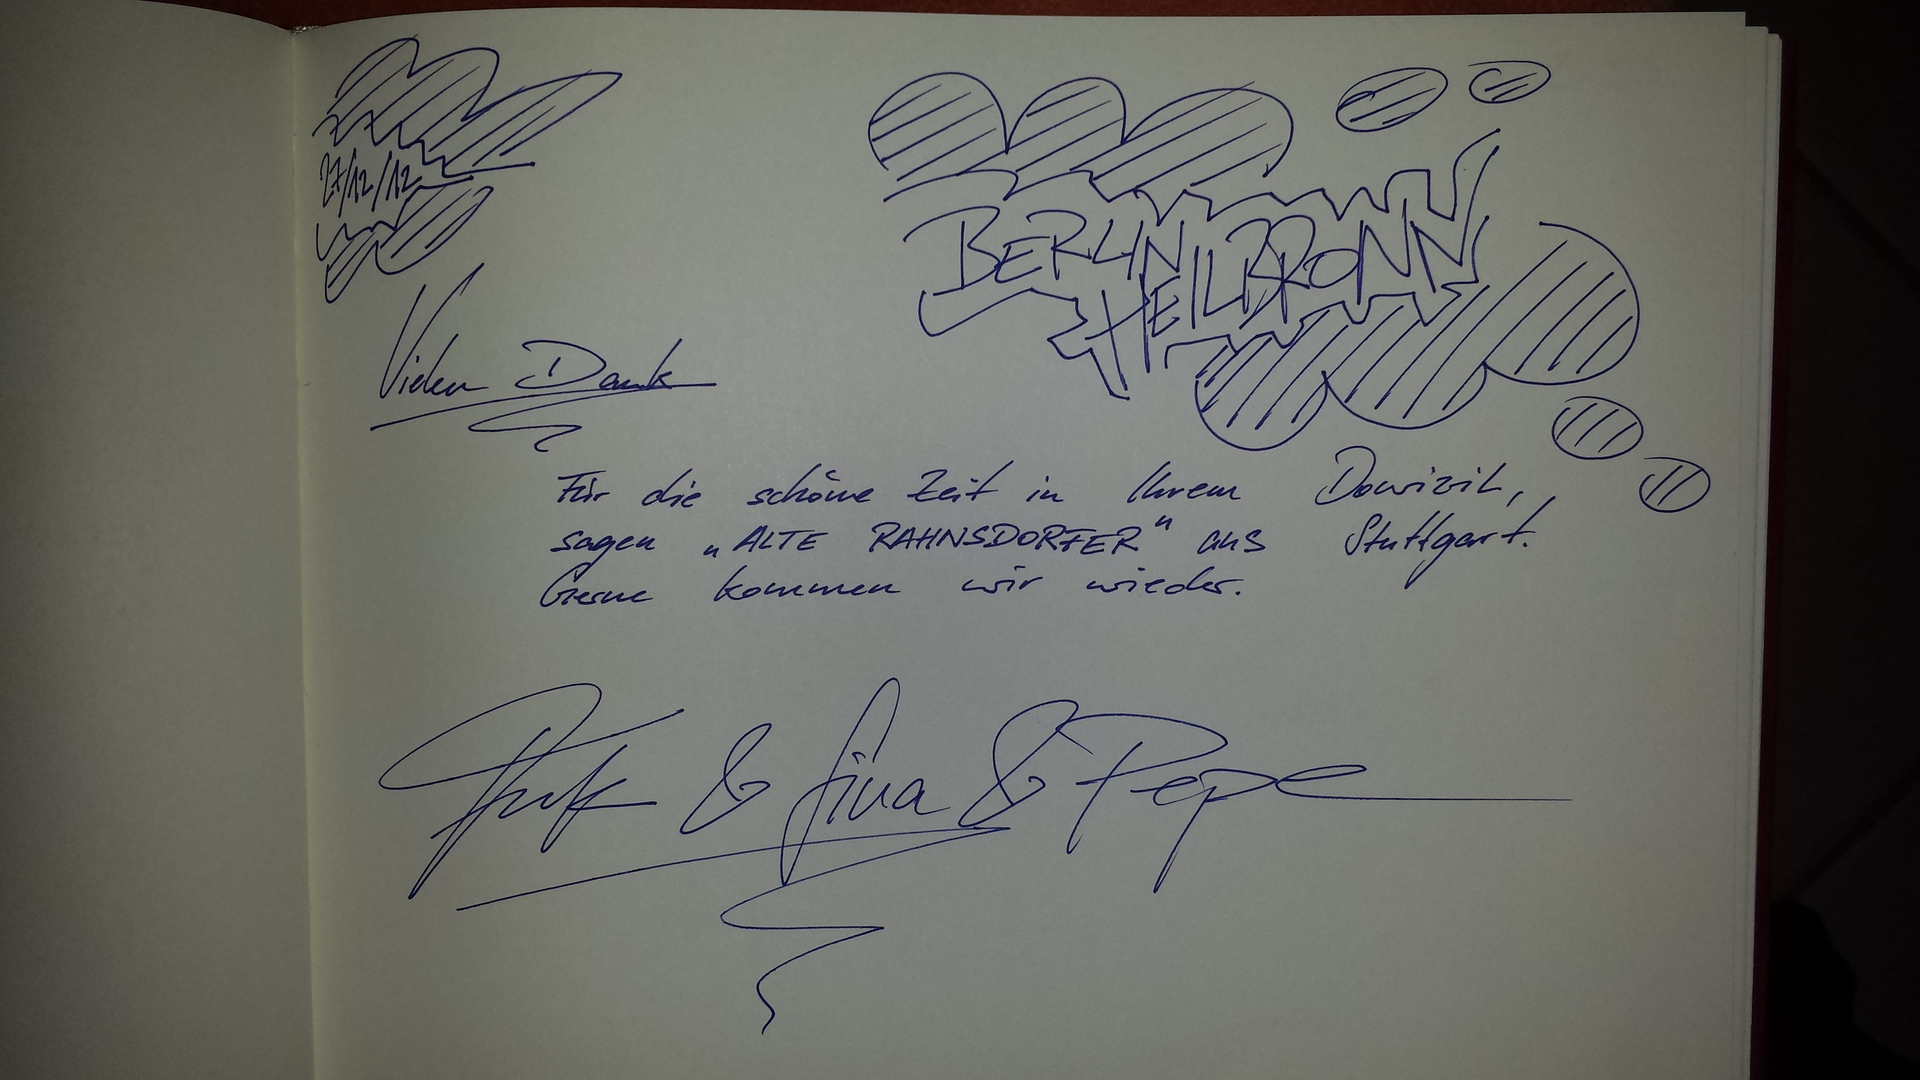 27/12/12
BERLIN
HEILBRONN
Vielen Dank
Für die schöne Zeit in Ihrem Dowizil,
sagen „ALTE RAHNSDORFER" aus Stuttgart.
Gerne kommen wir wieder.
& Sina & Pepe